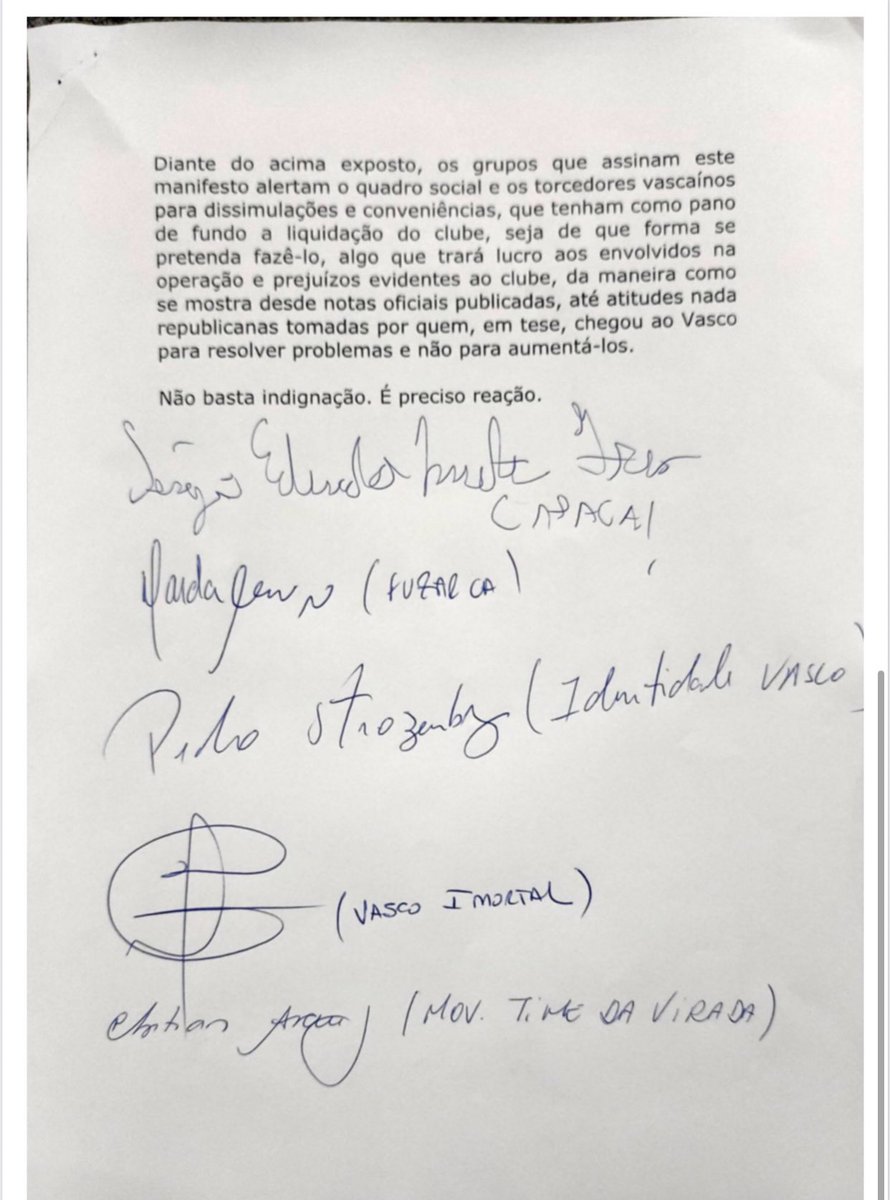 Diante do acima exposto, os grupos que assinam este
manifesto alertam o quadro social e os torcedores vascaínos
para dissimulações e conveniências, que tenham como pano
de fundo a liquidação do clube, seja de que forma se
pretenda fazê-lo, algo que trará lucro aos envolvidos na
operação e prejuízos evidentes ao clube, da maneira como
se mostra desde notas oficiais publicadas, até atitudes nada
republicanas tomadas por quem, em tese, chegou ao Vasco
para resolver problemas e não para aumentá-los.
Não basta indignação. É preciso reação.
(FUZARCA)
Pedro (Identidade VASCO)
(VASCO IMORTAL)
(MOV. TIME DA VIRADA)